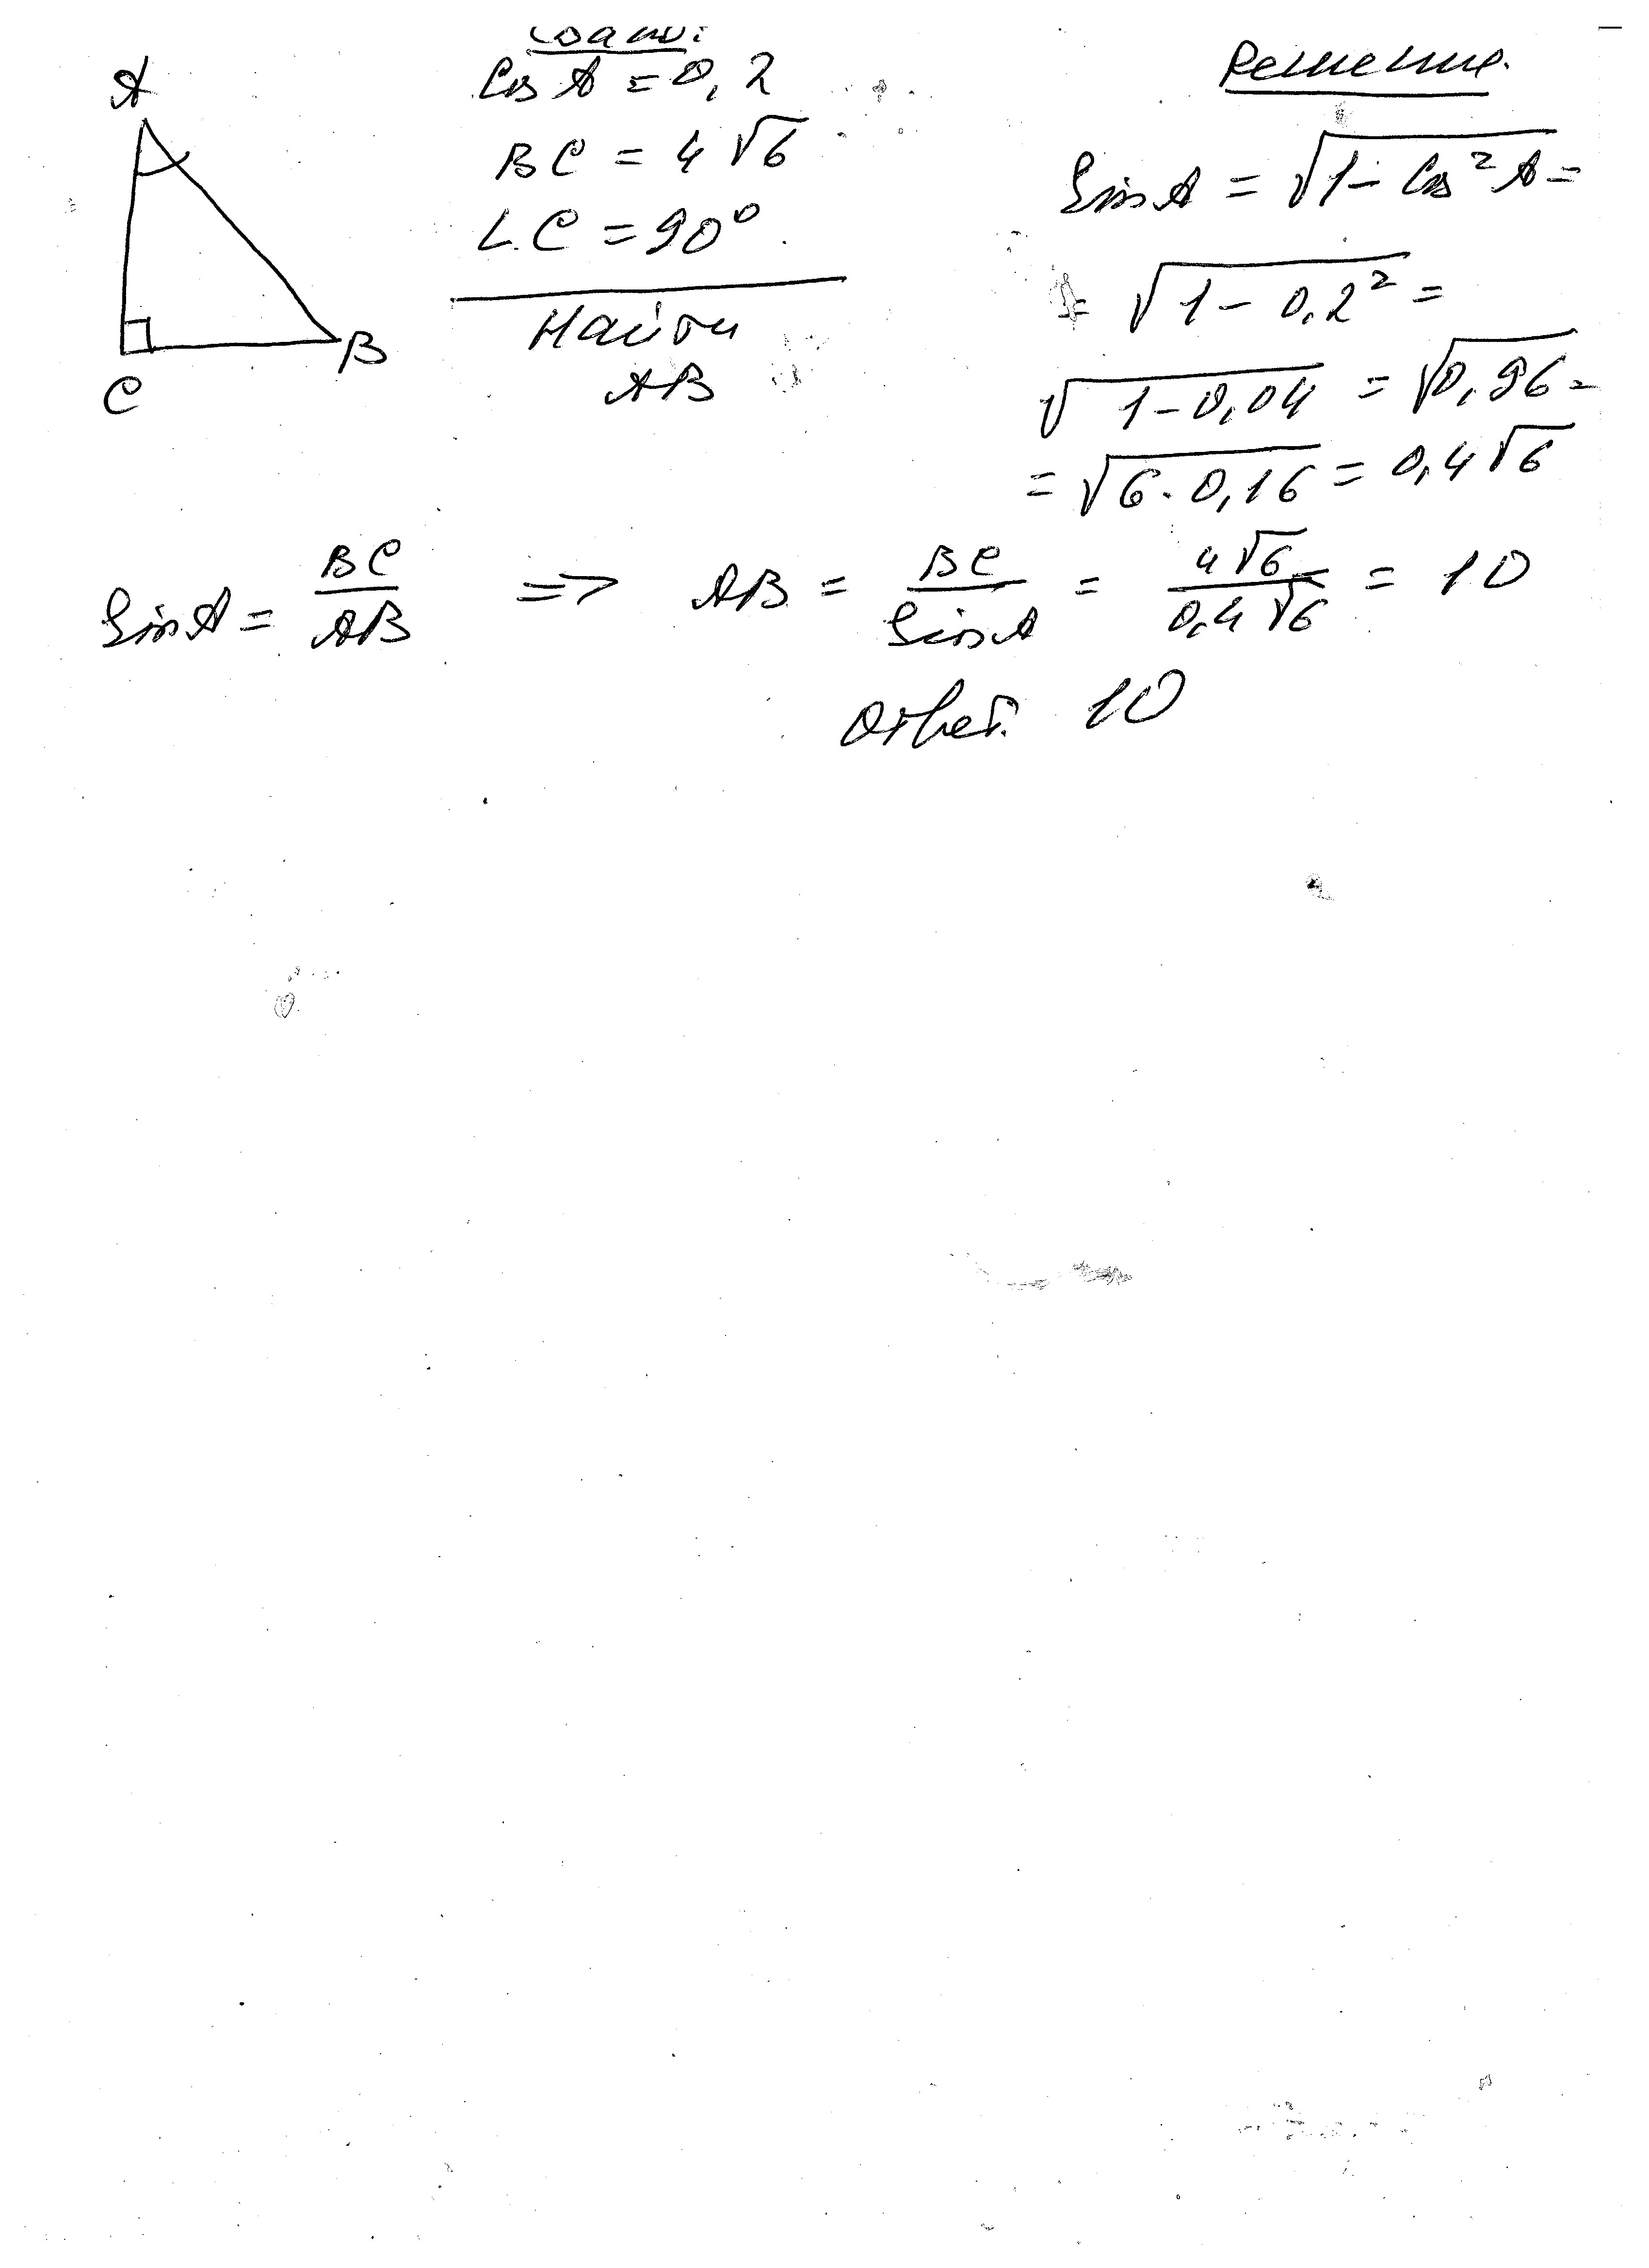 A
C
B
Cos A = 0,2
BC = 4√6
∠C = 90°
Найти
AB
Решение.
Sin A = √(1 - Cos²A) =
= √(1 - 0,2²) =
√(1 - 0,04) = √0,96 =
= √(6 · 0,16) = 0,4√6
Sin A = BC/AB => AB = BC/Sin A = 4√6/0,4√6 = 10
Ответ. 10